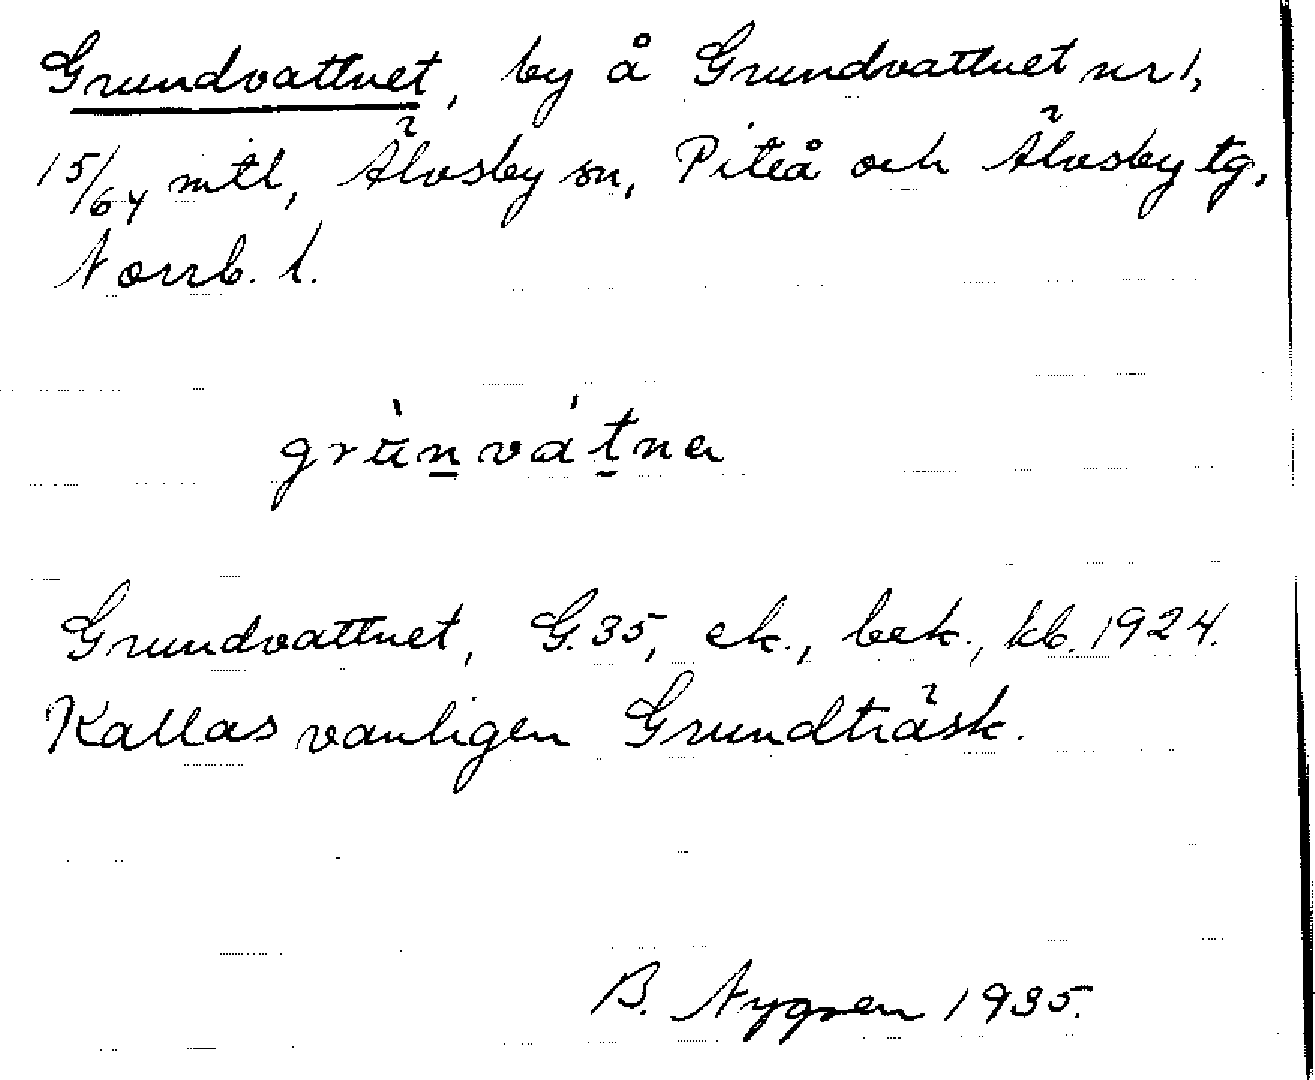 Grundvattnet, by å Grundvattnet nr 1,
15/64 mtl, Älvsby sn, Piteå och Älvsby tg,
Norrb. l.
Grundvattnet, G.35, ek., bek., kb. 1924.
Kallas vanligen Grundträsk.
B. Nygren 1935.